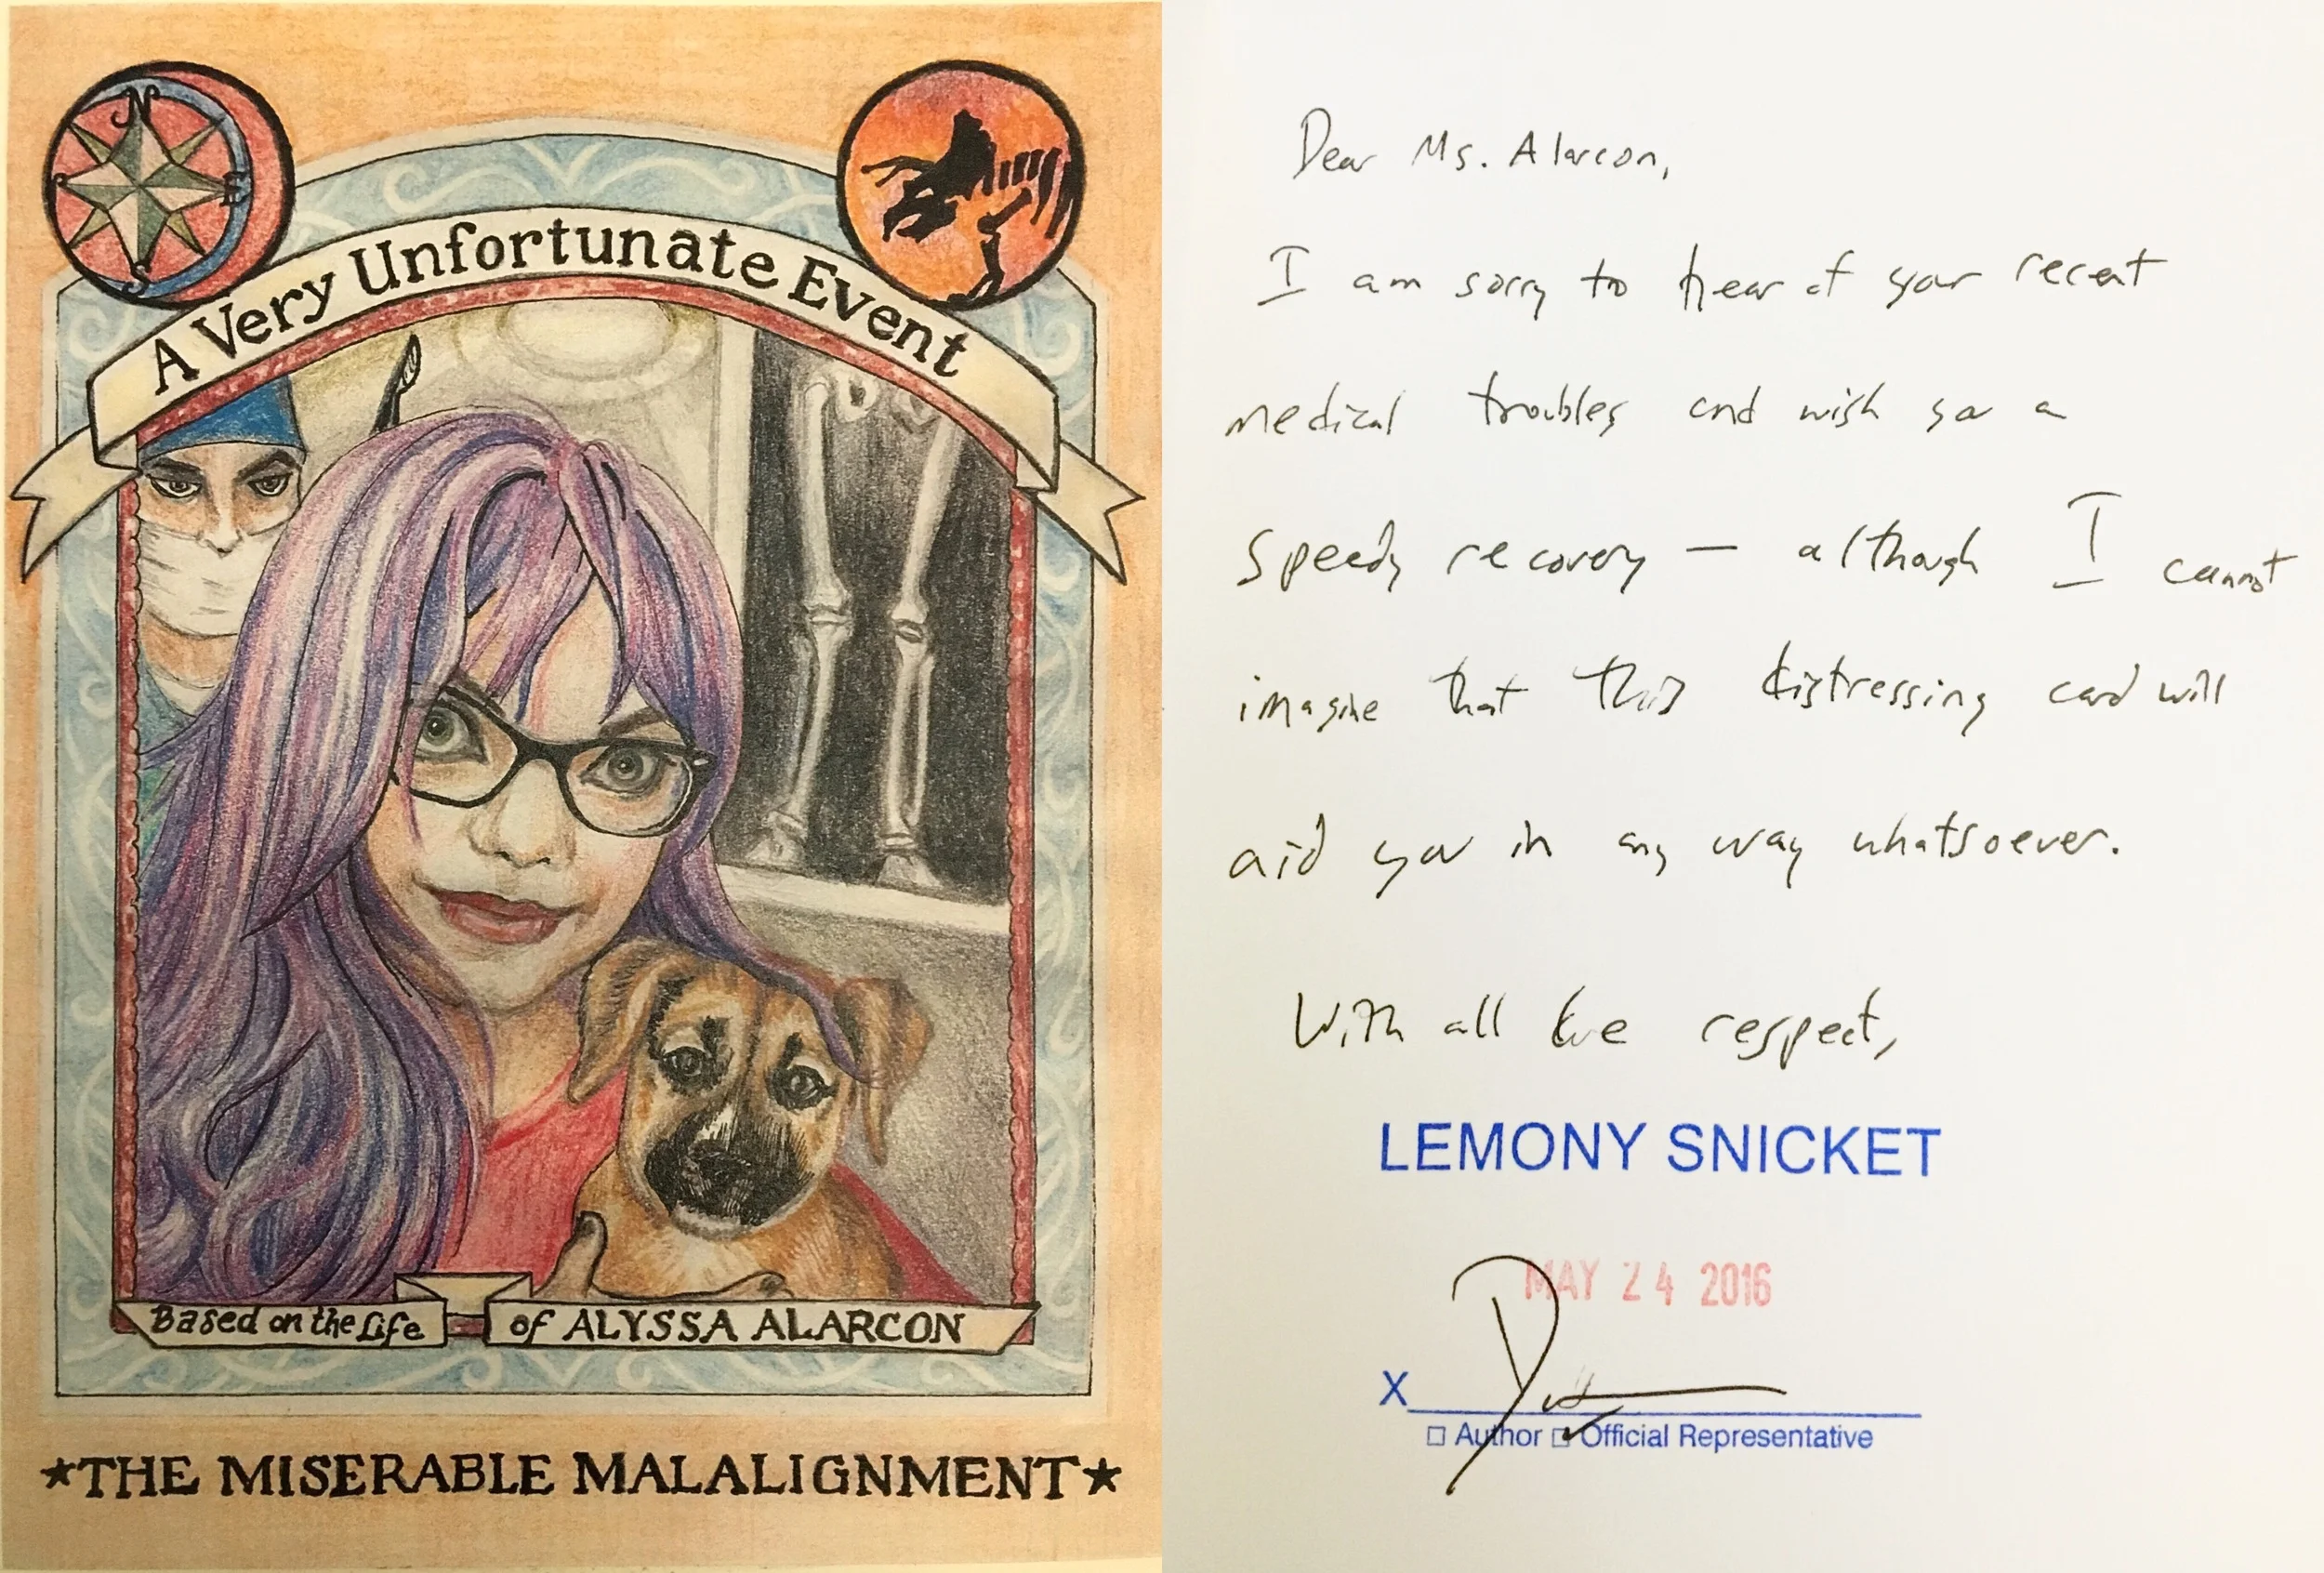 N
E
S
A Very Unfortunate Event
Based on the Life of ALYSSA ALARCON
★THE MISERABLE MALALIGNMENT★
Dear Ms. Alarcon,
I am sorry to hear of your recent
medical troubles and wish you a
speedy recovery — although I cannot
imagine that this distressing card will
aid you in any way whatsoever.
With all due respect,
LEMONY SNICKET
MAY 24 2016
X
☐ Author ☑ Official Representative